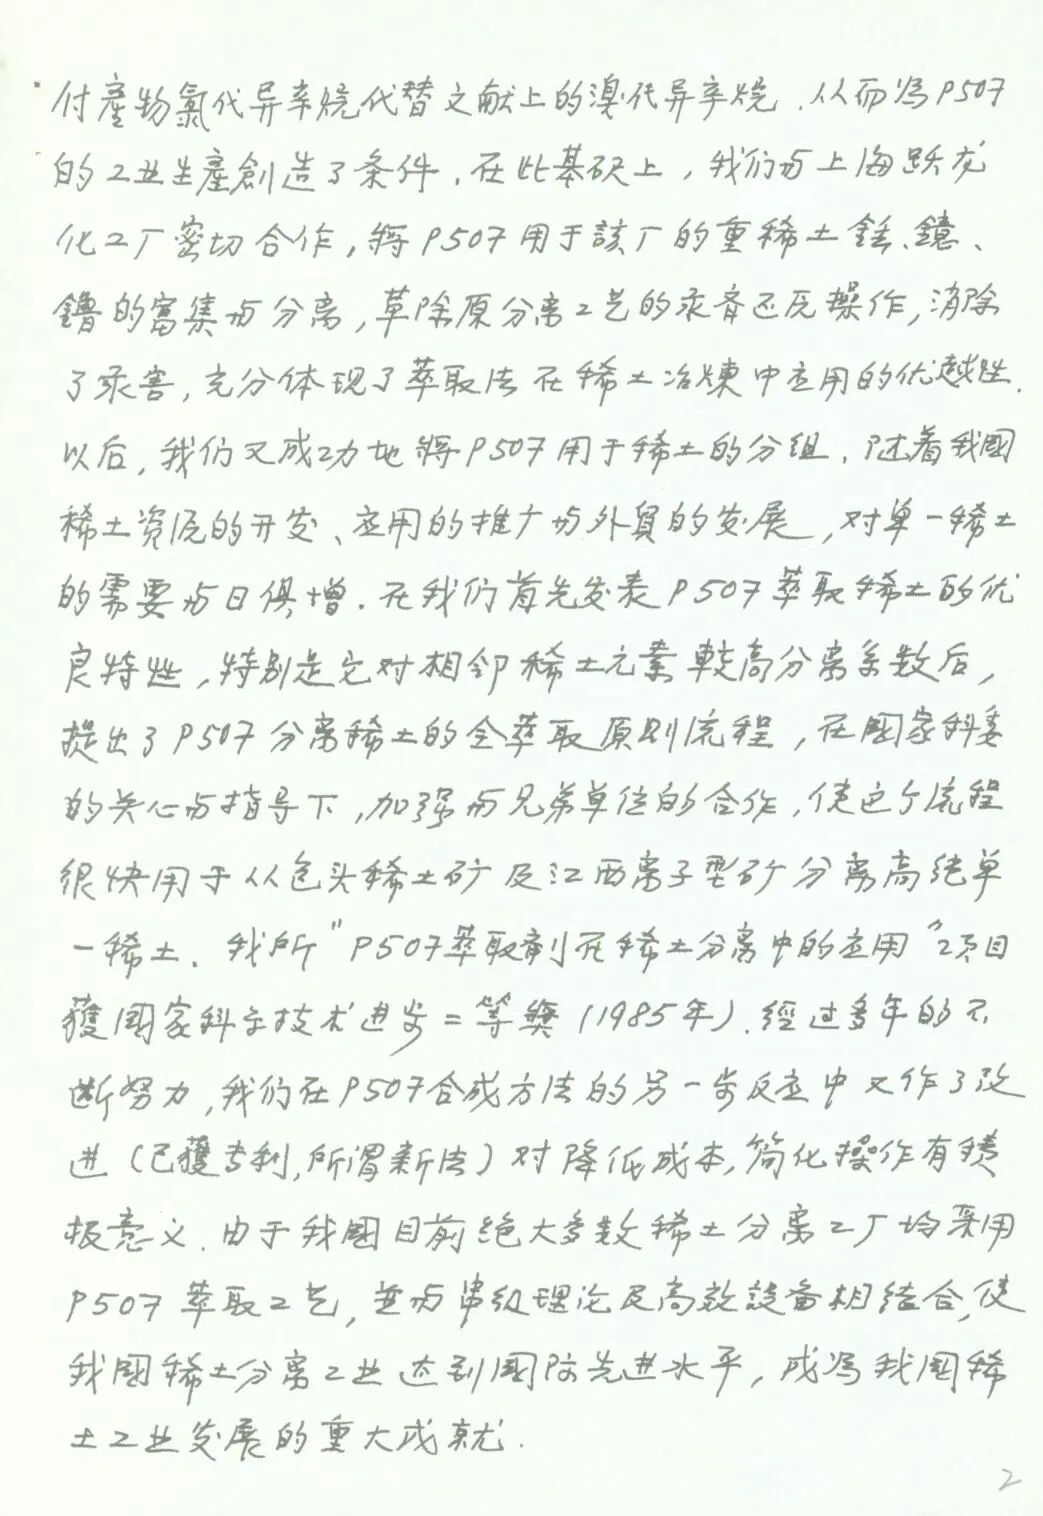 付產物氯代异辛烷代替文献上的溴代异辛烷.从而為P507
的工业生產創造了条件.在此基础上,我们与上海跃龙
化工厂密切合作,将P507用于該厂的重稀土銩、鐿、
鑥的富集与分离,革除原分离工艺的汞齐还原操作,消除
了汞害,充分体现了萃取法在稀土冶煉中应用的优越性.
以后,我们又成功地将P507用于稀土的分组.随着我國
稀土资源的开发、应用的推广与外貿的发展,对单一稀土
的需要与日俱增.在我们首先发表P507萃取稀土的优
良特性,特别是它对相邻稀土元素較高分离系数后,
提出了P507分离稀土的全萃取原则流程,在國家科委
的关心与指导下,加强与兄弟单位的合作,使这个流程
很快用于从包头稀土矿及江西离子型矿分离高纯单
一稀土.我所"P507萃取剂在稀土分离中的应用"项目
獲國家科学技术进步二等獎(1985年).經过多年的不
断努力,我们在P507合成方法的另一步反应中又作了改
进(已獲专利,所謂新法)对降低成本,简化操作有積
极意义.由于我國目前绝大多数稀土分离工厂均采用
P507萃取工艺,並与串级理论及高效設备相结合,使
我國稀土分离工业达到國际先进水平,成為我國稀
土工业发展的重大成就.
2